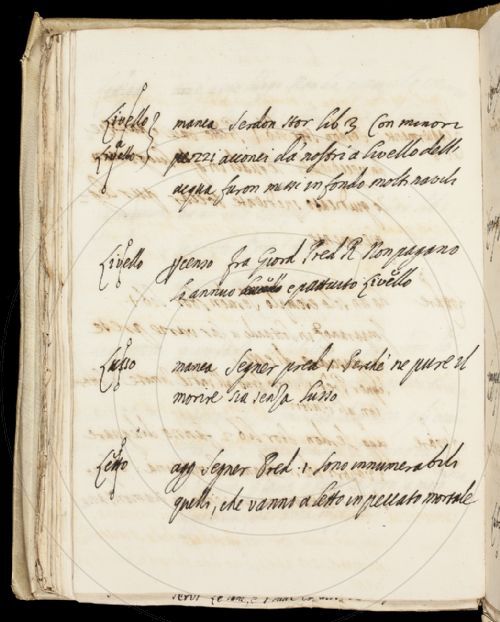 Livello manca Serdon stor lib 3 Con minori
a
Livello pezzi acconci da nostri a livello dell
acqua furon messi in fondo molti navili
Livello p censo fra Giord Pred R Non pagano
l'annuo e pattuito Livello
Lusso manca Segner pred 1 Perché ne pure il
morire sia senza lusso
Letto agg Segner Pred 1 Sono innumerabili
quelli, che vanno a letto in peccato mortale